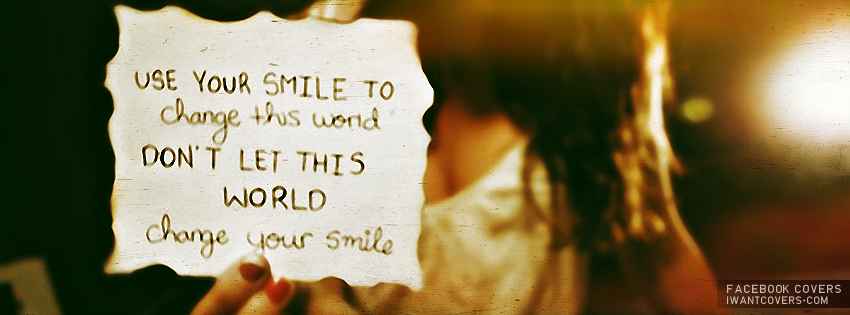 USE YOUR SMILE TO
change this world
DON'T LET THIS
WORLD
change your smile
FACEBOOK COVERS
IWANTCOVERS.COM